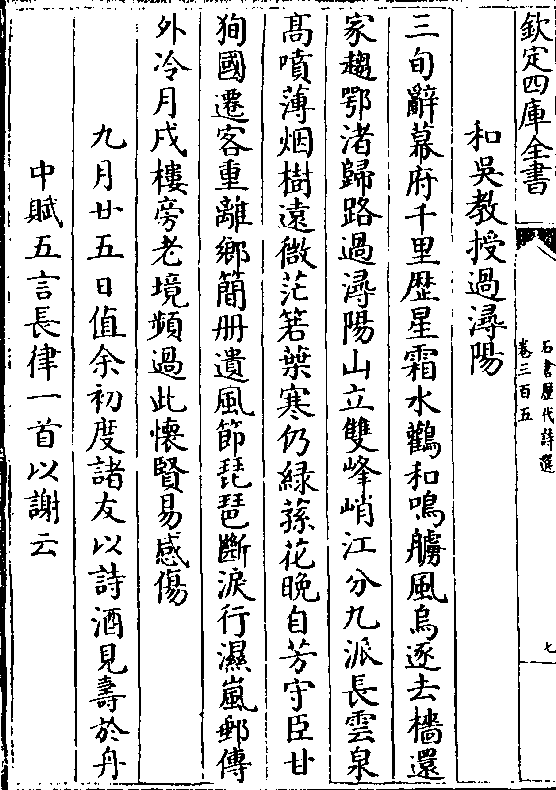 欽定四庫全書
石倉歷代詩選
卷三百五
七
和吳教授過潯陽
三旬辭幕府千里歴星霜水鸛和鳴艣風烏逐去檣還
家趨鄂渚歸路過潯陽山立雙峰峭江分九派長雲泉
髙噴薄烟樹遠微茫箬葉寒仍緑蓀花晚自芳守臣甘
狥國遷客重離鄉簡册遺風節琵琶斷淚行濕嵐郵傳
外冷月戍樓旁老境頻過此懷賢易感傷
九月廿五日值余初度諸友以詩酒見壽於舟
中賦五言長律一首以謝云